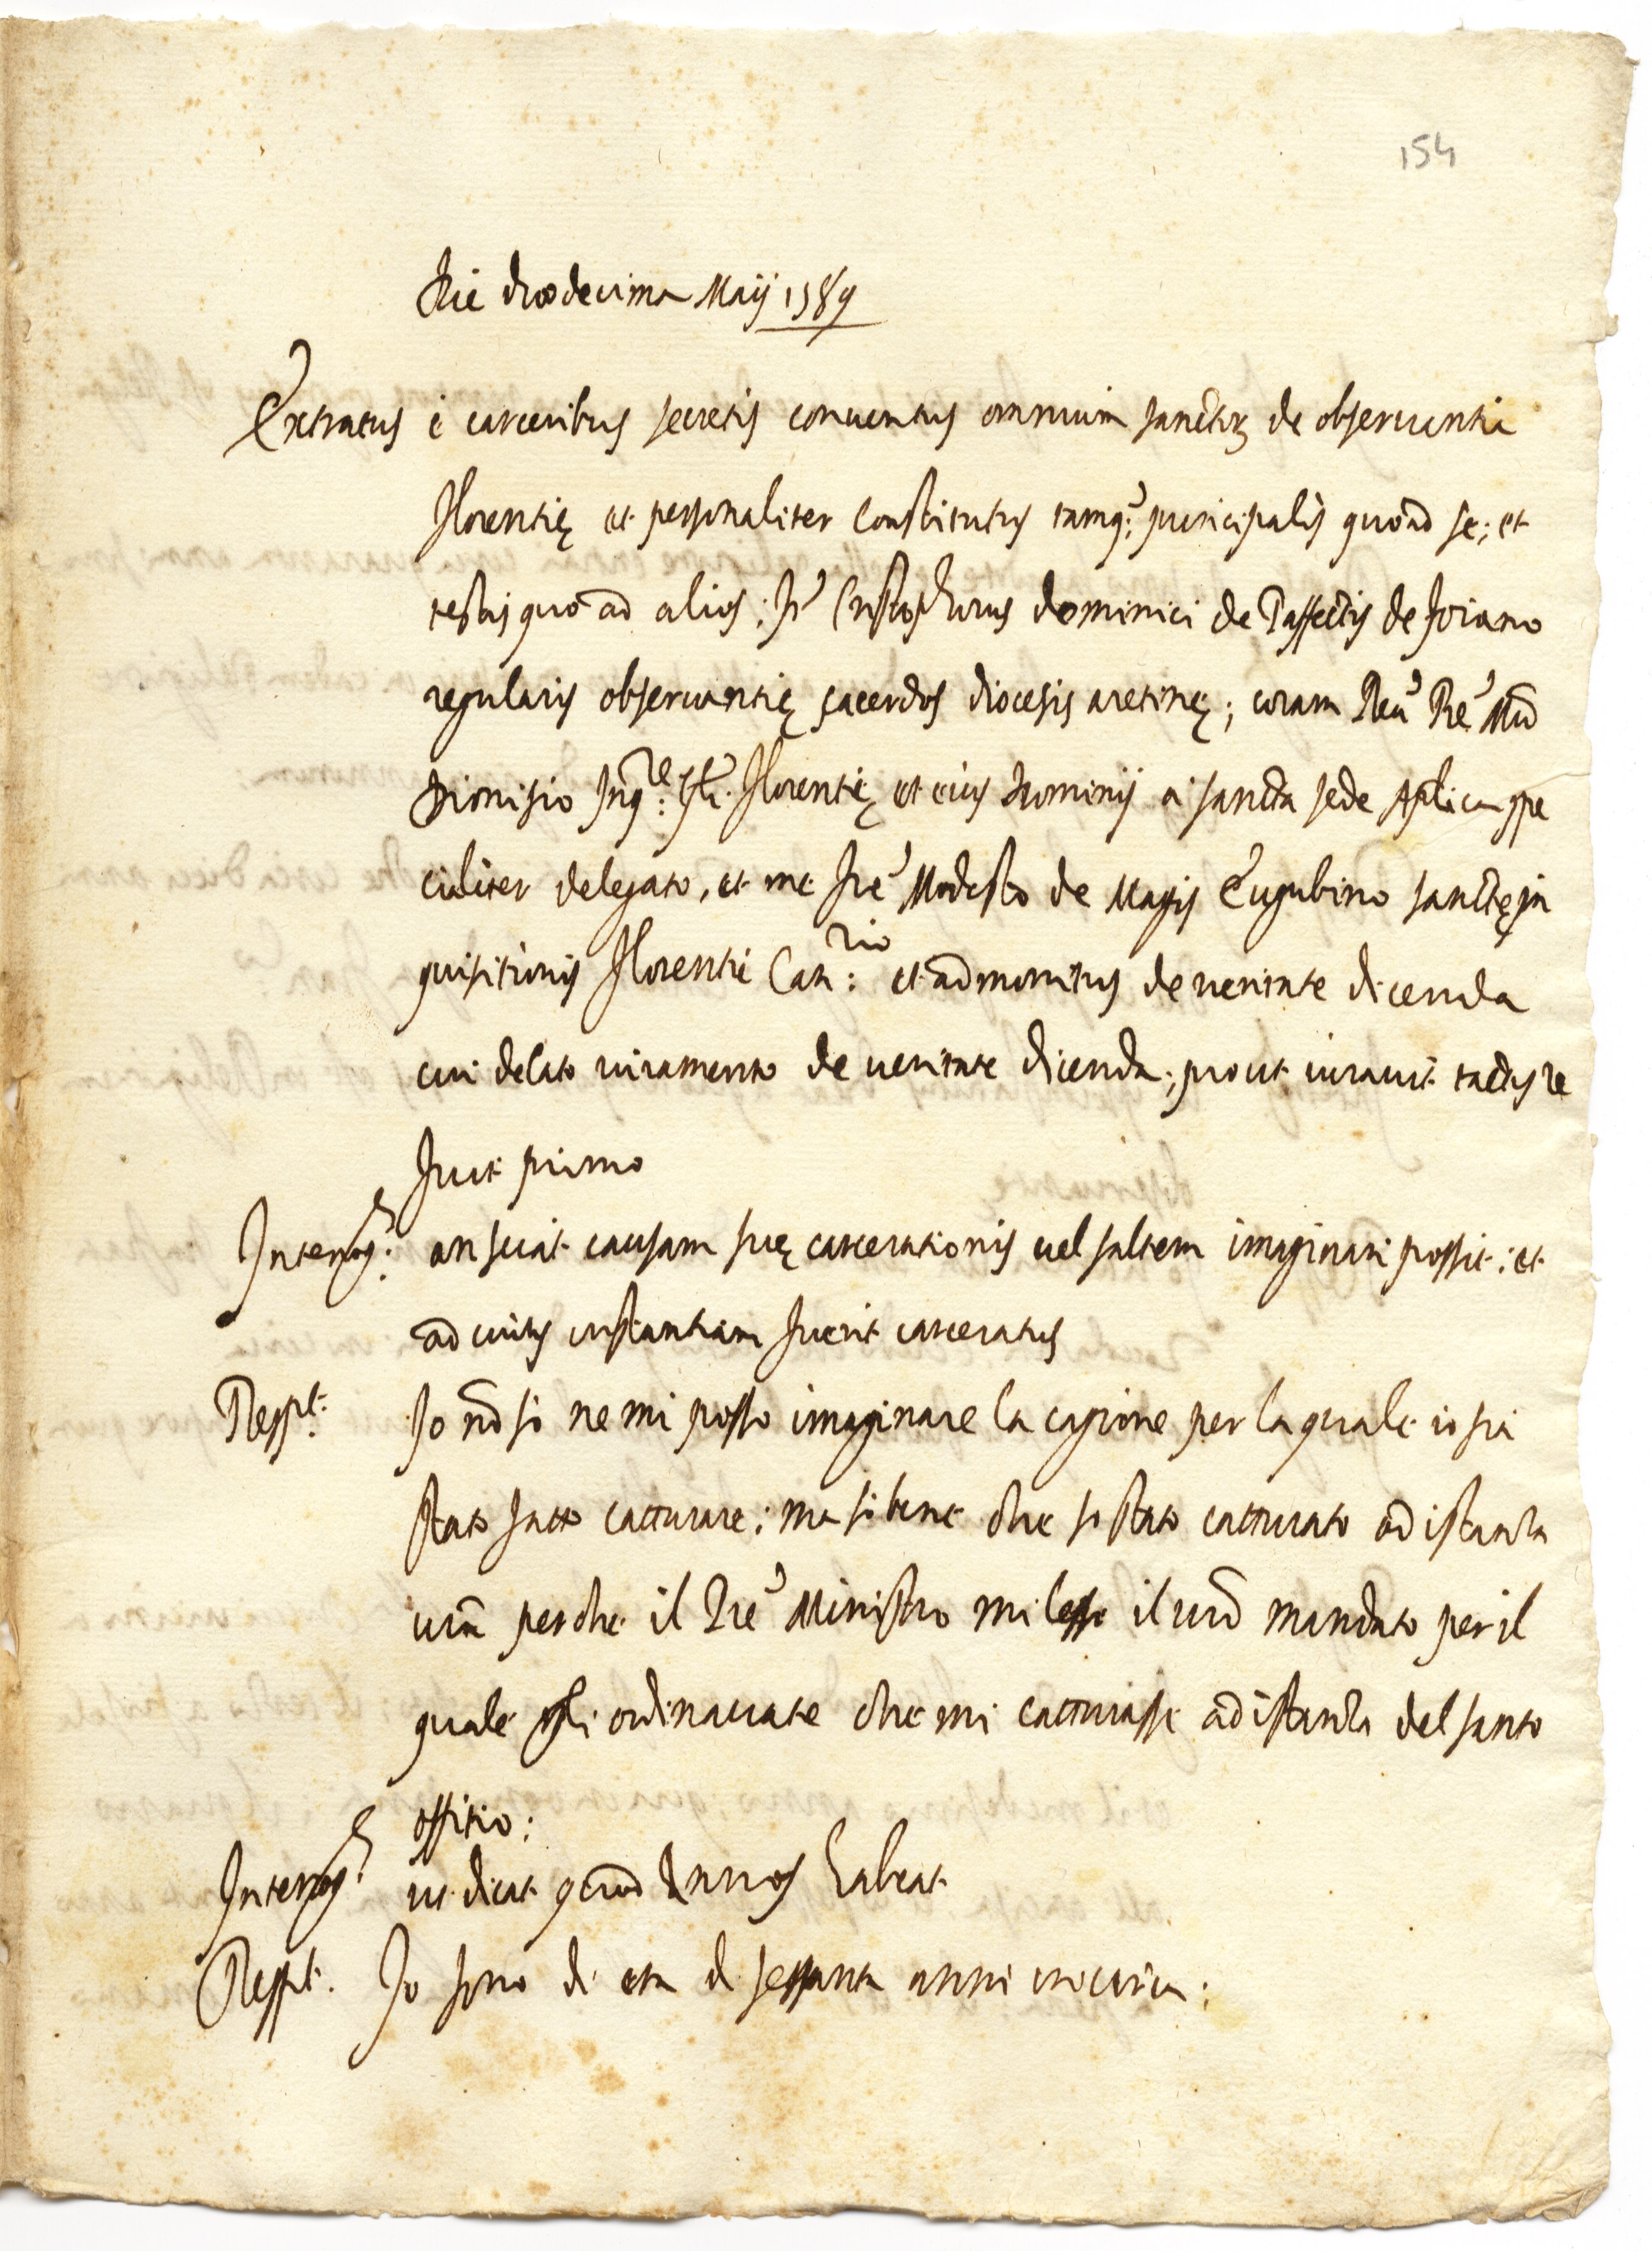 154
Die duodecima Maij 1589
Extractus è carceribus secretis conuentus omnium sanctorʒ de obseruantia
Florentię et personaliter Constitutus tamq.ʾ principalis quoad se; et
testis quo ad alios; frʾ Cristophorus dominici de Paffectis de foiano
regularis obseruantię sacerdos diocesis aretinę; coram Reuʾ Preʾ Mrō
Dionisio Inq.re Gñli. Florentię et eius Dominij à sancta sede Apłica spe
cialiter delegato, et me freʾ Modesto de Magis Eugubino sanctę in
quisitionis Florentię Can:rio et admonitus de ueritate dicenda
cui delato iuramento de ueritate dicenda; prout iurauit tactis re
fuit primo
Interrog.s an sciat causam suę carcerationis uel saltem imaginari possit; et
ad cuius instantiam fuerit carceratus
Respt: Io nō so ne mi posso imaginare la cagione per la quale io sia
stato fatto catturare; ma so bene che so stato catturato ad istantia
urã perche il Preʾ Ministro mi lesse il urō mandato per il
quale gli ordinauate che mi catturasse ad istantia del santo
offitio;
Interrog.s ut dicat quod Annos habeat
Respt. Io sono di eta di sessanta anni incirca;